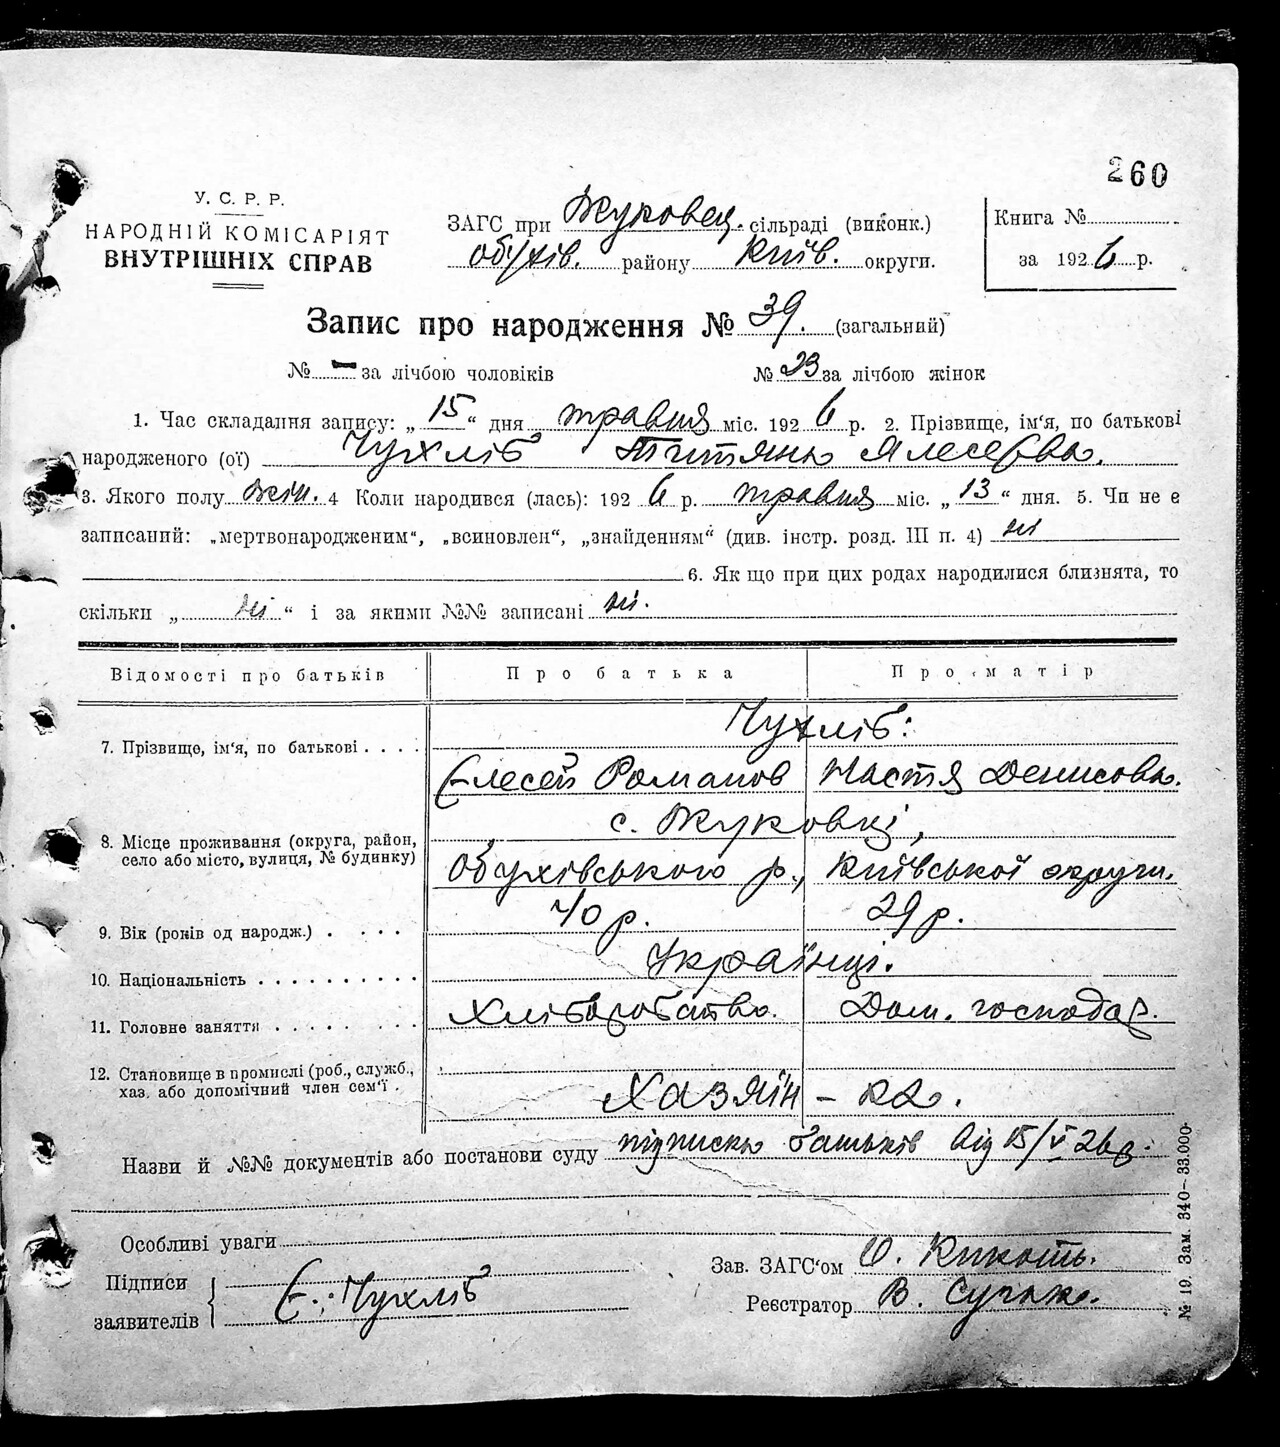 260
У. С. Р. Р.
НАРОДНІЙ КОМІСАРІЯТ
ВНУТРІШНІХ СПРАВ
ЗАГС при Жуковец. сільраді (виконк.)
Обухів. району Київ. округи.
Книга №
за 1926 р.
Запис про народження № 39. (загальний)
№ – за лічбою чоловіків № 23 за лічбою жінок
1. Час складання запису: „15“ дня травня міс. 1926 р. 2. Прізвище, ім‘я, по батькові
народженого (ої) Чухліб Тетяна Єлесеєва.
3. Якого полу жін. 4 Коли народився (лась): 1926 р. травня міс. „13“ дня. 5. Чи не є
записаний: „мертвонародженим“, „всиновлен“, „знайденням“ (див. інстр. розд. III п. 4) ні
6. Як що при цих родах народилися близнята, то
скільки „ні“ і за якими №№ записані ні.
Відомості про батьків Про батька Про матір
7. Прізвище, ім‘я, по батькові . . . . Чухліб:
Єлесей Романов Настя Денисова.
8. Місце проживання (округа, район, село або місто, вулиця, № будинку) с. Жуковці,
Обухівського р., Київської округи.
9. Вік (років од народж.) . . . . 40 р. 29 р.
10. Національність . . . . . . . . . . Українці.
11. Головне заняття . . . . . . . . . Хліборобство. Дом. господар.
12. Становище в промислі (роб., служб., хаз. або допомічний член сем‘ї . Хазяїн – ка.
Назви й №№ документів або постанови суду підписка батьків від 15/V 26 р.
Особливі уваги
Підписи
заявителів
Є. Чухліб
Зав. ЗАГС‘ом
Реєстратор В.
№ 19. Зам. 340–33.000